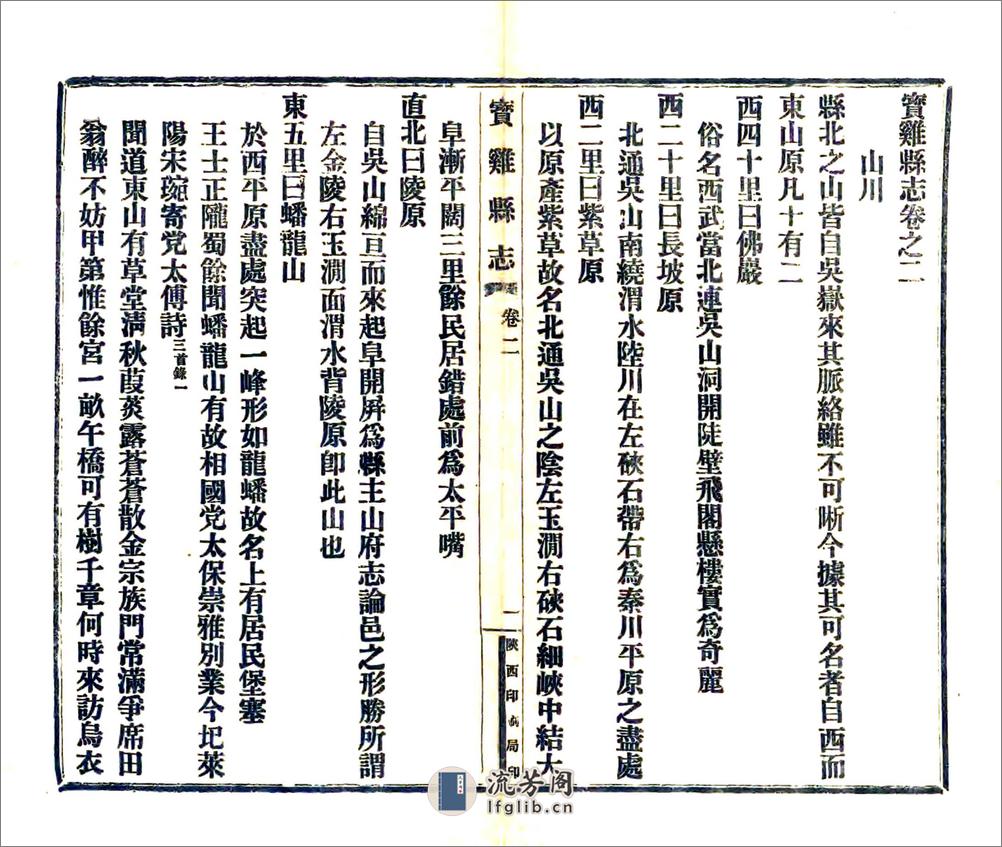 寶雞縣志卷之二
山川
縣北之山皆自吳嶽來其脈絡雖不可晰今據其可名者自西而
東山原凡十有二
西四十里曰佛巖
俗名西武當北連吳山洞開陡壁飛閣懸樓實爲奇麗
西二十里曰長坡原
北通吳山南繞渭水陸川在左硤石帶右爲秦川平原之盡處
西二里曰紫草原
以原產紫草故名北通吳山之陰左玉澗右硤石細峽中結大
寶雞縣志 卷二 一 陝西印刷局印
阜漸平闊三里餘民居錯處前爲太平嘴
直北曰陵原
自吳山綿亘而來起阜開屏爲縣主山府志論邑之形勝所謂
左金陵右玉澗面渭水背陵原卽此山也
東五里曰蟠龍山
於西平原盡處突起一峰形如龍蟠故名上有居民堡塞
王士正隴蜀餘聞蟠龍山有故相國党太保崇雅別業今圮萊
陽宋琬寄党太傅詩三首錄一
聞道東山有草堂淸秋葭菼露蒼蒼散金宗族門常滿爭席田
翁醉不妨甲第惟餘宮一畝午橋可有樹千章何時來訪烏衣
流芳閣
lfglib.cn